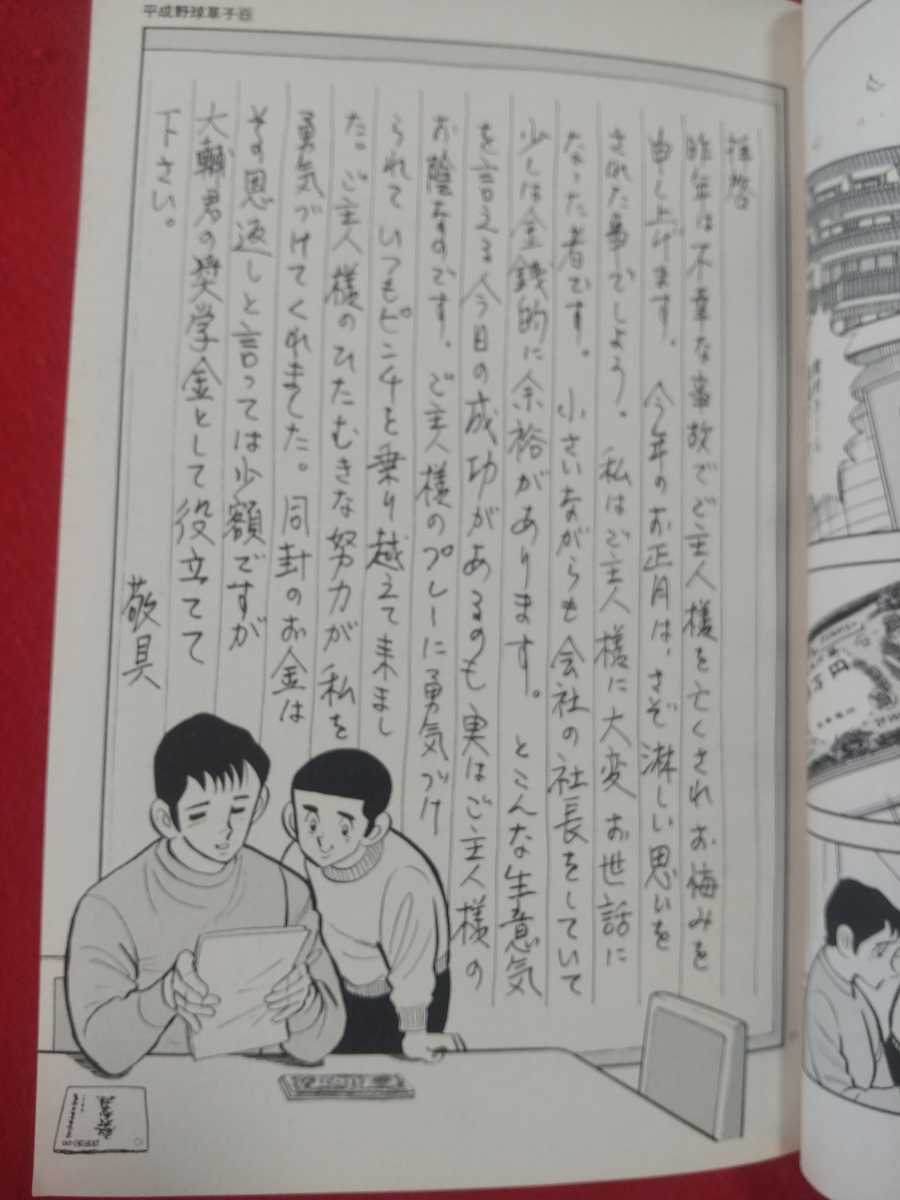 平成野球草子⑤
拝啓
昨年は不幸な事故でご主人様を亡くされお悔みを
申し上げます。今年のお正月は、さぞ淋しい思いを
された事でしょう。私はご主人様に大変お世話に
なった者です。小さいながらも会社の社長をしていて
少しは金銭的に余裕があります。とこんな生意気
を言える今日の成功があるのも実はご主人様の
お陰なのです。ご主人様のプレーに勇気づけ
られていつもピンチを乗り越えて来まし
た。ご主人様のひたむきな努力が私を
勇気づけてくれました。同封のお金は
その恩返しと言っては少額ですが
大輔君の奨学金として役立てて
下さい。
敬具